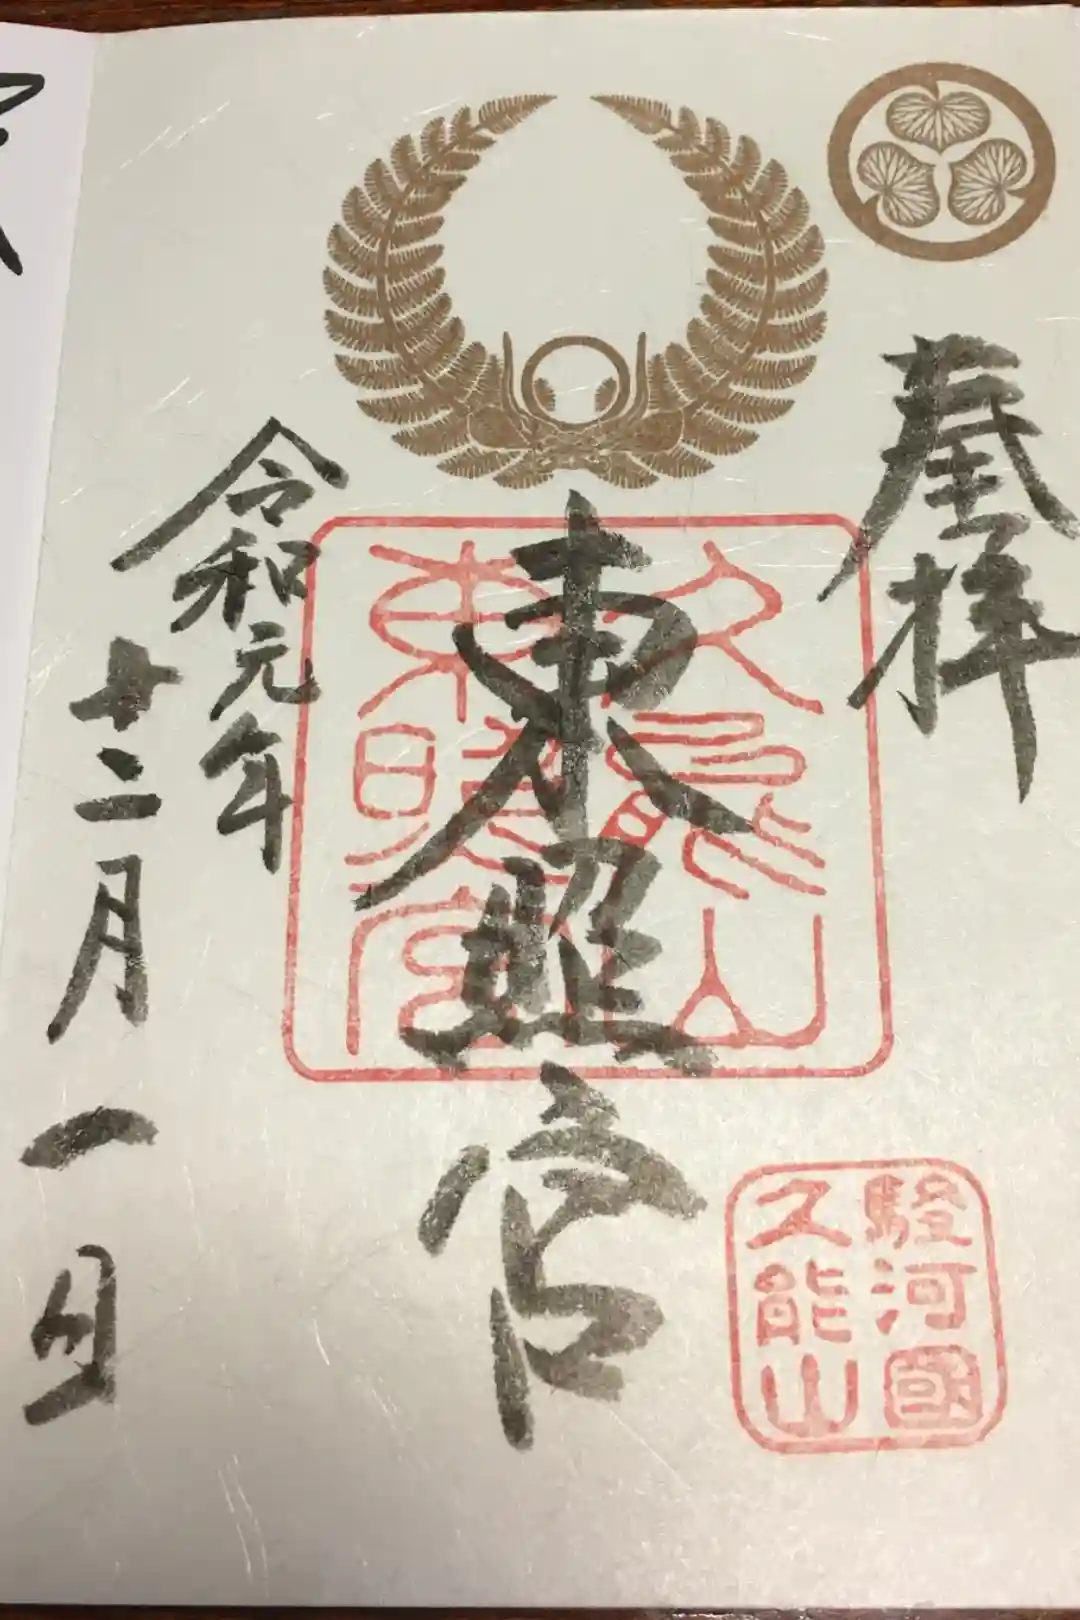 奉拝
東照宮
令和元年
十二月一日
久能山
東照宮
駿河國
久能山